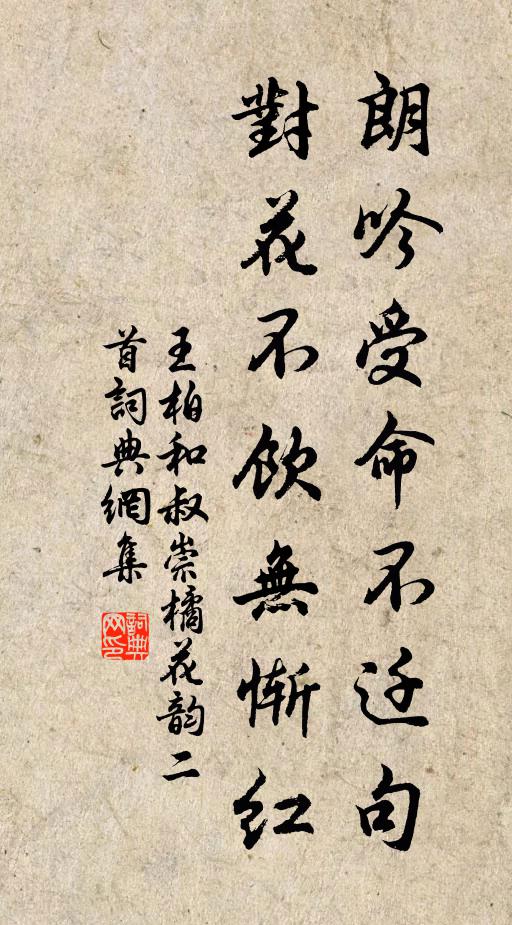 朗吟受命不迁句
對花不飲無慚红
王柏和叔崇橘花韵二
首詞典網集
詞典网印